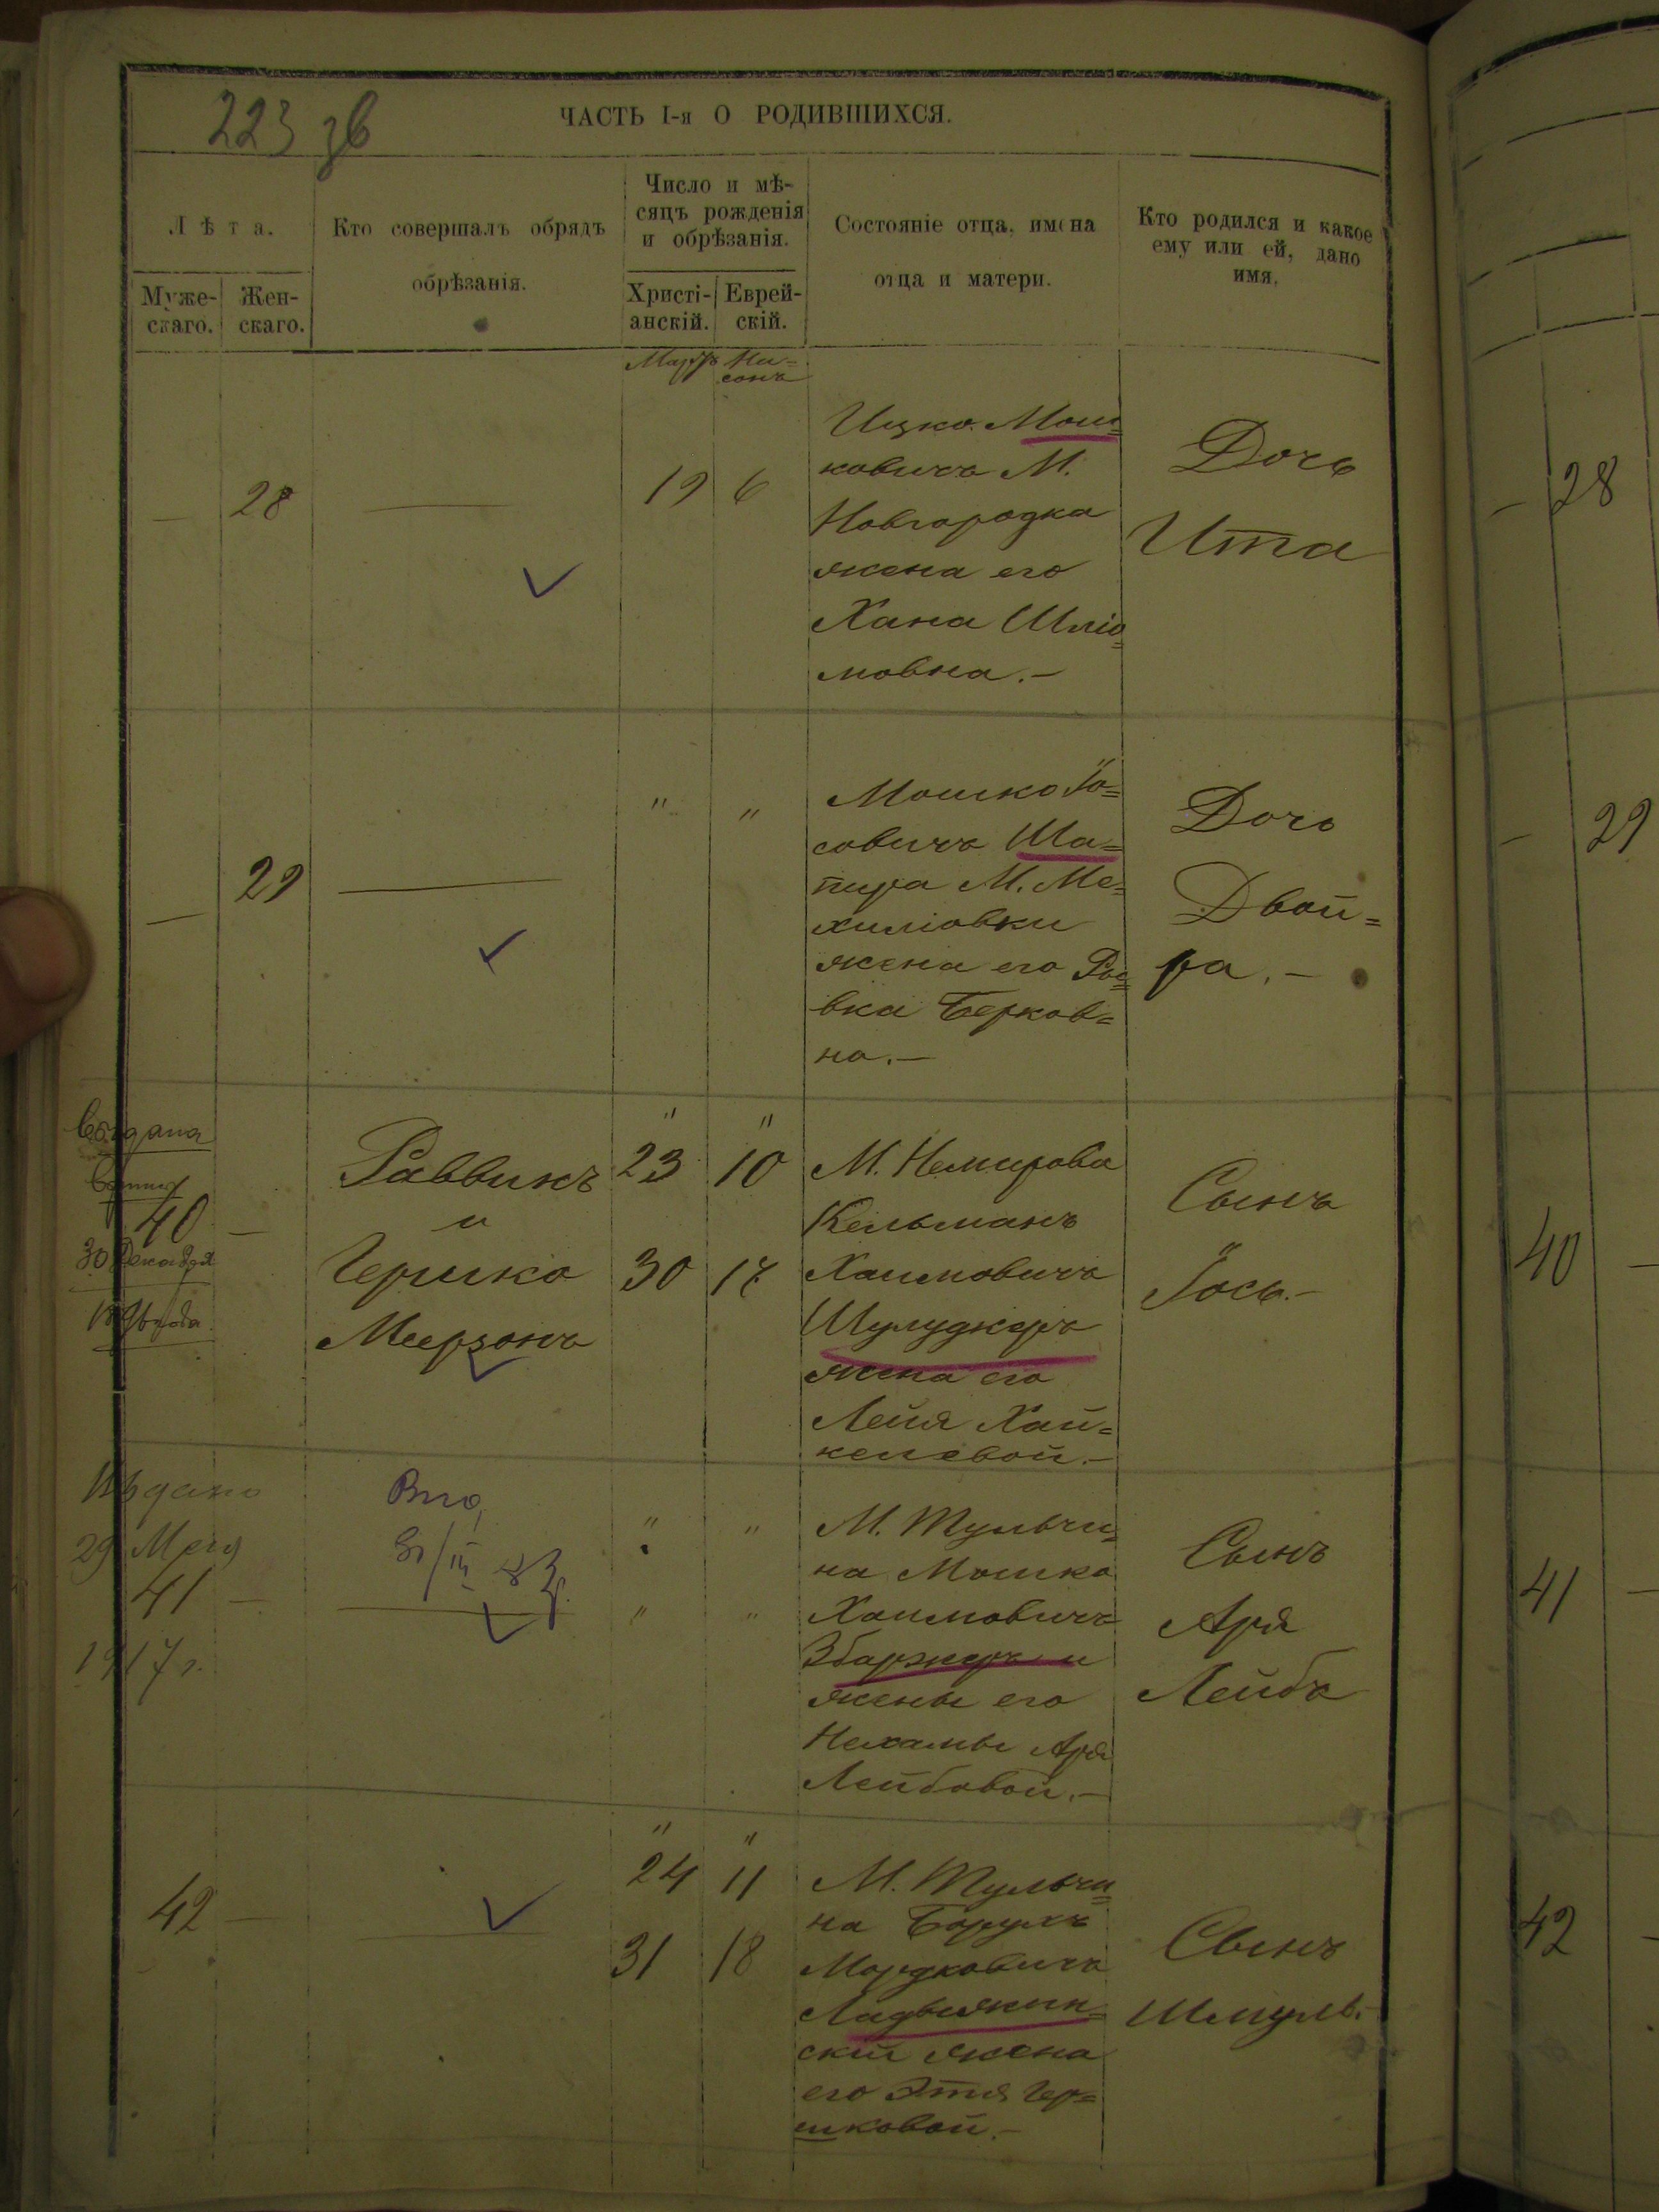 223 зв
ЧАСТЬ I-я О РОДИВШИХСЯ.
Лѣта.
Муже-
скаго.
Жен-
скаго.
Кто совершалъ обрядъ
обрѣзанія.
Число и мѣ-
сяцъ рожденія
и обрѣзанія.
Христі-
анскій.
Еврей-
скій.
Состояніе отца, имена
отца и матери.
Кто родился и какое
ему или ей, дано
имя.
Мартъ Ни=
санъ
— 28 —
19 6
Ицко Мош=
ковичъ М.
Новгородка
жена его
Хана Шліо=
мовна.—
Дочь
Ита
— 29 —
" "
Мошко Іо=
совичъ Ша=
пира М. Ме=
хиліовки
жена его Ры=
вка Берков=
на.—
Дочь
Двой=
ра.—
40 —
30 Декабря
Раввинъ
и
Гершко
Меерзонъ
" "
23 10
30 17
М. Немирова
Кельманъ
Хаимовичъ
Шулуджеръ
жена его
Лейя Хай=
келевой.—
Сынъ
Іось.—
Выдано
29 Мая
41 —
1917 г.
" "
" "
М. Тульчи=
на Мошко
Хаимовичъ
Збаржеръ и
жены его
Нехамы Аря
Лейбовой.—
Сынъ
Аря
Лейбъ
42 —
" "
24 11
31 18
М. Тульчи=
на Борухъ
Мордковичъ
Ладыжин=
скій жена
его Этя Гер=
шковой.—
Сынъ
Шмуль.—
— 28
— 29
40 —
41 —
42 —